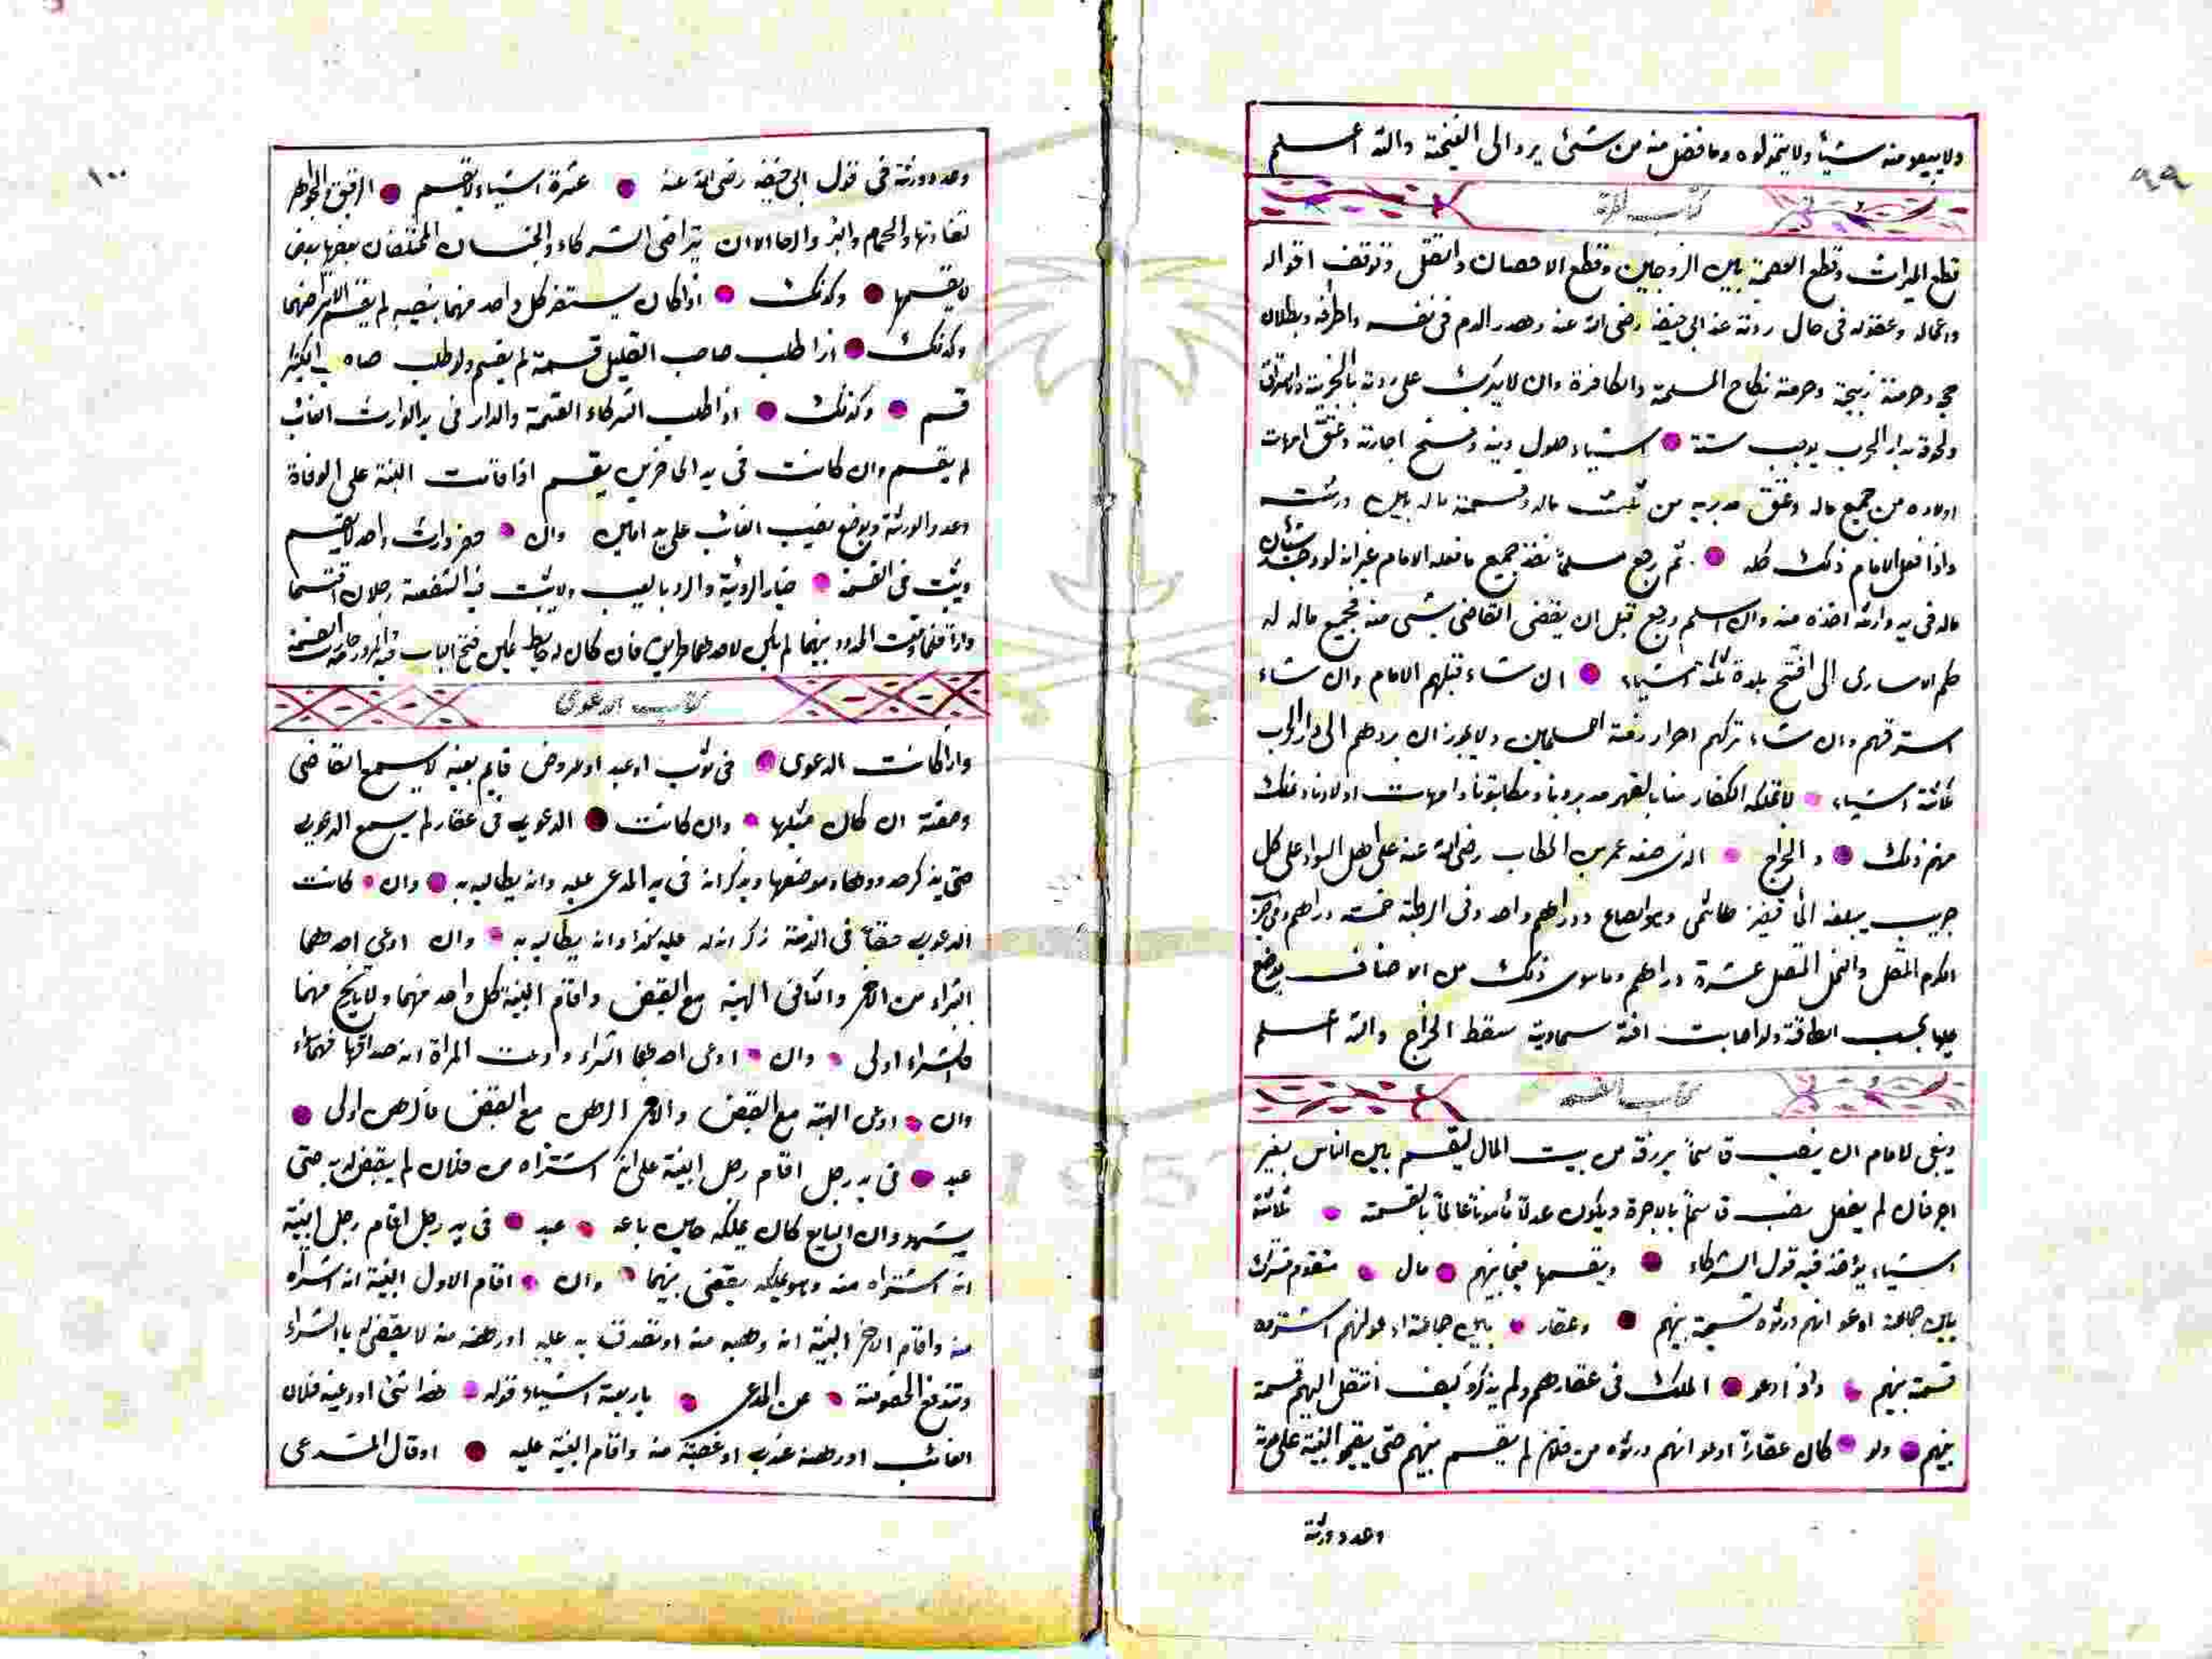 ٩٩
ولا يبيعو منه شيئا ولا يتمولوه وما فضل منه من شئ يرد الى الغنيمة والله اعلم
كتاب الردة
قطع الميراث وقطع العصمة بين الزوجين وقطع الاحصان والقتل وتوقف اقواله
وافعاله وعقوده فى حال ردته عند ابى حنيفة رضى الله عنه وهدر الدم فى نفسه واطرافه وبطلان
حجه وحرمة ذبيحته وحرمة نكاح المسلمة والكافرة وان لا يترك على ردته بالجزية
ولحوقه بدار الحرب يوجب ستة اشياء حلول دينه وفسخ اجارته وعتق امهات
اولاده من جميع ماله وعتق مدبريه من ثلث ماله وقسمة ماله بين ورثته
واذا فعل الامام ذلك كله ثم رجع مسلماً نفذ جميع ما فعله الامام غير انه لو وجد شيئان
ماله فى يد وارثه اخذه منه وان اسلم ورجع قبل ان يقضى القاضى بشئ منه فجميع ماله له
حكم الاسارى الى افتتح بلدة ثلثة اشياء ان شاء قتلهم الامام وان شاء
استرقهم وان شاء تركهم احرار ذمة المسلمين ولا يجوز ان يردهم الى دار الحرب
ثلاثة اشياء لا تملكه الكفار منا بالقهر مدبرونا ومكاتبونا وامهات اولادنا ونملك
منهم ذلك و الخراج الذى وضعه عمر بن الخطاب رضى الله عنه على اهل السواد على كل
جريب يبلغه الماء قفيز هاشمى وهو الصاع ودراهم واحد وفى الرطبة خمسة دراهم
الكرم المتصل والنخل المتصل عشرة دراهم وما سوى ذلك من الاصناف يوضع
عليها بحسب الطاقة ولو اصابت افة سماوية سقط الخراج والله اعلم
كتاب القسمة
وينبغى للامام ان ينصب قاسماً يرزقه من بيت المال ليقسم بين الناس بغير
اجر فان لم يفعل نصب قاسماً بالاجرة ويكون عدلاً مأموناً عالماً بالقسمة ثلاثة
اشياء يؤخذ فيه قول الشركاء ويقسمها فيما بينهم مال منقوم مشترك
بين جماعة ادعو انهم ورثوه قسمه بينهم وعقار بين جماعة ادعو انهم اشتروه
قسمه بينهم واذ ادعو الملك فى عقارهم ولم يذكرو كيف انتقل اليهم قسمه
بينهم ولو كان عقاراً ادعو انهم ورثوه من فلان لم يقسم بينهم حتى يقيمو البينة على موته
وعدد ورثته
١٠٠
وعدد ورثته فى قول ابى حنيفة رضى الله عنه عشرة اشياء لا يقسم الرقيق والجواهر
تفاوتها والحمام والبئر والرحا الا ان يتراضى الشركاء والجنسان المختلفان بعضها بعض
لا يقسمها وكذلك اذا كان يستضر كل واحد منهما بنصيبه لم يقسم الا بتراضيهما
وكذلك اذا طلب صاحب القليل قسمة لم يقسم ولو طلب صاحب الكثير
قسم وكذلك اذا طلب الشركاء القسمة والدار فى يد الوارث الغائب
لم يقسم وان كانت فى يد الحاضرين يقسم اذا قامت البينة على الوفاة
وعدد الورثة ويوضع نصيب الغائب على يد امين وان حضر وارث واحد لا يقسم
ويثبت فى القسمة خيار الرؤية والرد بالعيب ولا يثبت فيه الشفعة رجلان اقتسما
داراً فلما وقعت الحدود بينهما لم يكن لاحدهما طريق فان كان له حايط يمكن فتح الباب فيه
كتاب الدعوى
واذا كانت الدعوى فى ثوب او عبد او عروض قايم بعينه لا يسمع القاضى
وصفته ان كان مثلها وان كانت الدعوى فى عقار لم يسمع الدعوى
حتى يذكر حدودها وموضعها ويذكر انه فى يد المدعى عليه وانه يطالبه به وان كانت
الدعوى حقاً فى الذمة ذكر انه له عليه كذا وانه يطالبه به وان ادعى احدهما
الشراء من الاخر والثانى الهبة مع القبض واقام البينة كل واحد منهما ولا تاريخ منهما
فالشراء اولى وان ادعى احدهما الشراء وادعت المراة انه صداقها فهما سواء
وان ادعى الهبة مع القبض والاخر الرهن مع القبض فالرهن اولى
عبد فى يد رجل اقام رجل البينة على انه اشتراه من فلان لم يقض له به حتى
يشهدو ان البايع كان يملكه حين باعه عبد فى يد رجل اقام رجل البينة
انه اشتراه منه وهو يملكه يقضى بينهما وان اقام الاول البينة انه اشتراه
منه واقام الاخر البينة انه وهبه منه او تصدق به عليه او رهنه منه لا يقضى له بالشراء
وتندفع الخصومة عن المدعى باربعة اشياء قوله هذا شئ اودعنيه فلان
الغائب او رهنه عندى او غصبته منه واقام البينة عليه او قال المدعى